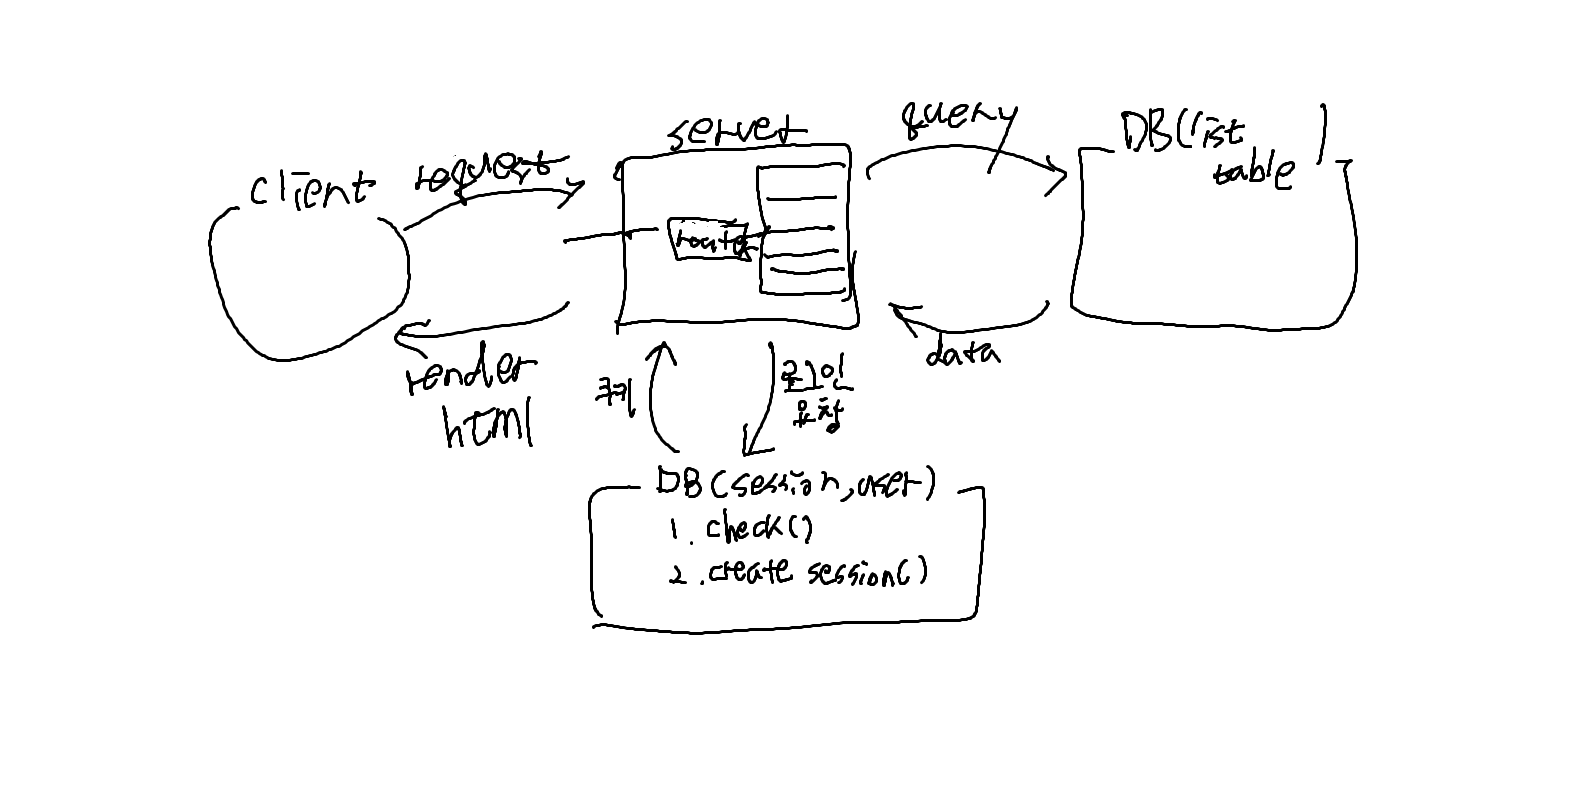 client
request
server
router
query
DB(list
table)
render
html
data
쿠키
로그인
요청
DB(session,user)
1. check()
2. create session()